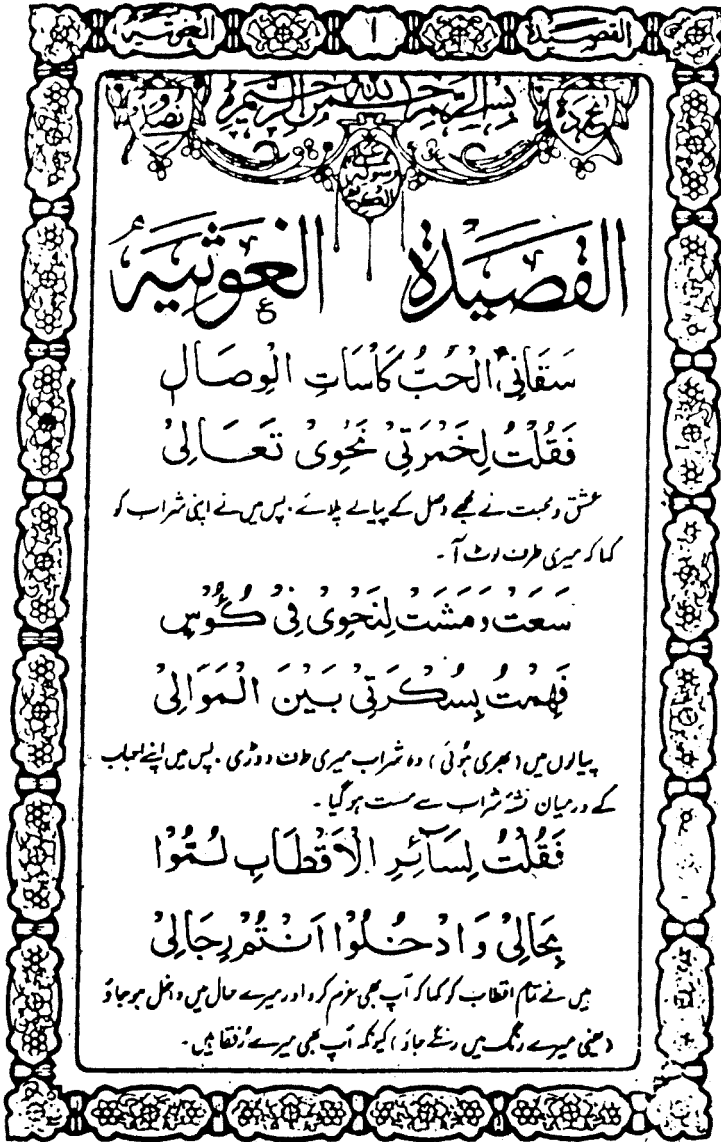 القصيدة
١
الغوثية
بسم الله الرحمن الرحيم
نحمده
القصيدة الغوثية
سَقَانِي الْحُبُّ كَأْسَاتِ الْوِصَالِ
فَقُلْتُ لِخَمْرَتِيْ نَحْوِيْ تَعَالِيْ
عشق و محبت نے مجھے وصل کے پیالے پلائے۔ پس میں نے اپنی شراب کو
کہا کہ میری طرف لوٹ آ۔
سَعَتْ وَمَشَتْ لِنَحْوِيْ فِيْ كُؤُوْسٍ
فَهِمْتُ بِسُكْرَتِيْ بَيْنَ الْمَوَالِيْ
پیالوں میں (بھری ہوئی) وہ شراب میری طرف دوڑی۔ پس میں اپنے احباب
کے درمیان نشۂ شراب سے مست ہوگیا۔
فَقُلْتُ لِسَآئِرِ الْاَقْطَابِ لُمُّوْا
بِحَالِيْ وَادْخُلُوْا اَنْتُمْ رِجَالِيْ
میں نے تمام اقطاب کو کہا کہ آپ بھی عزم کرو اور میرے حال میں داخل ہو جاؤ
(یعنی میرے رنگ میں رنگے جاؤ) کیونکہ آپ بھی میرے رفقا ہیں۔